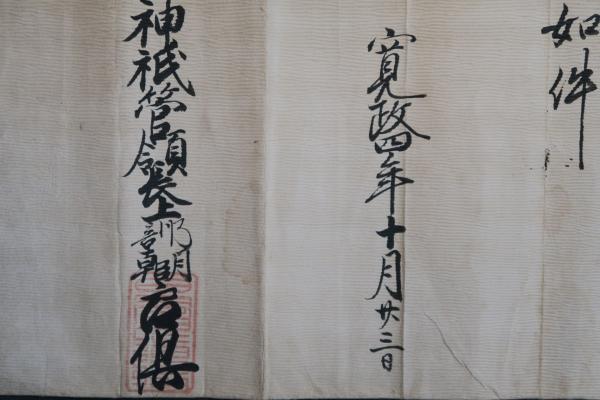 如件
寛政四年十月廿三日
神祇管領長上卜部朝臣良倶